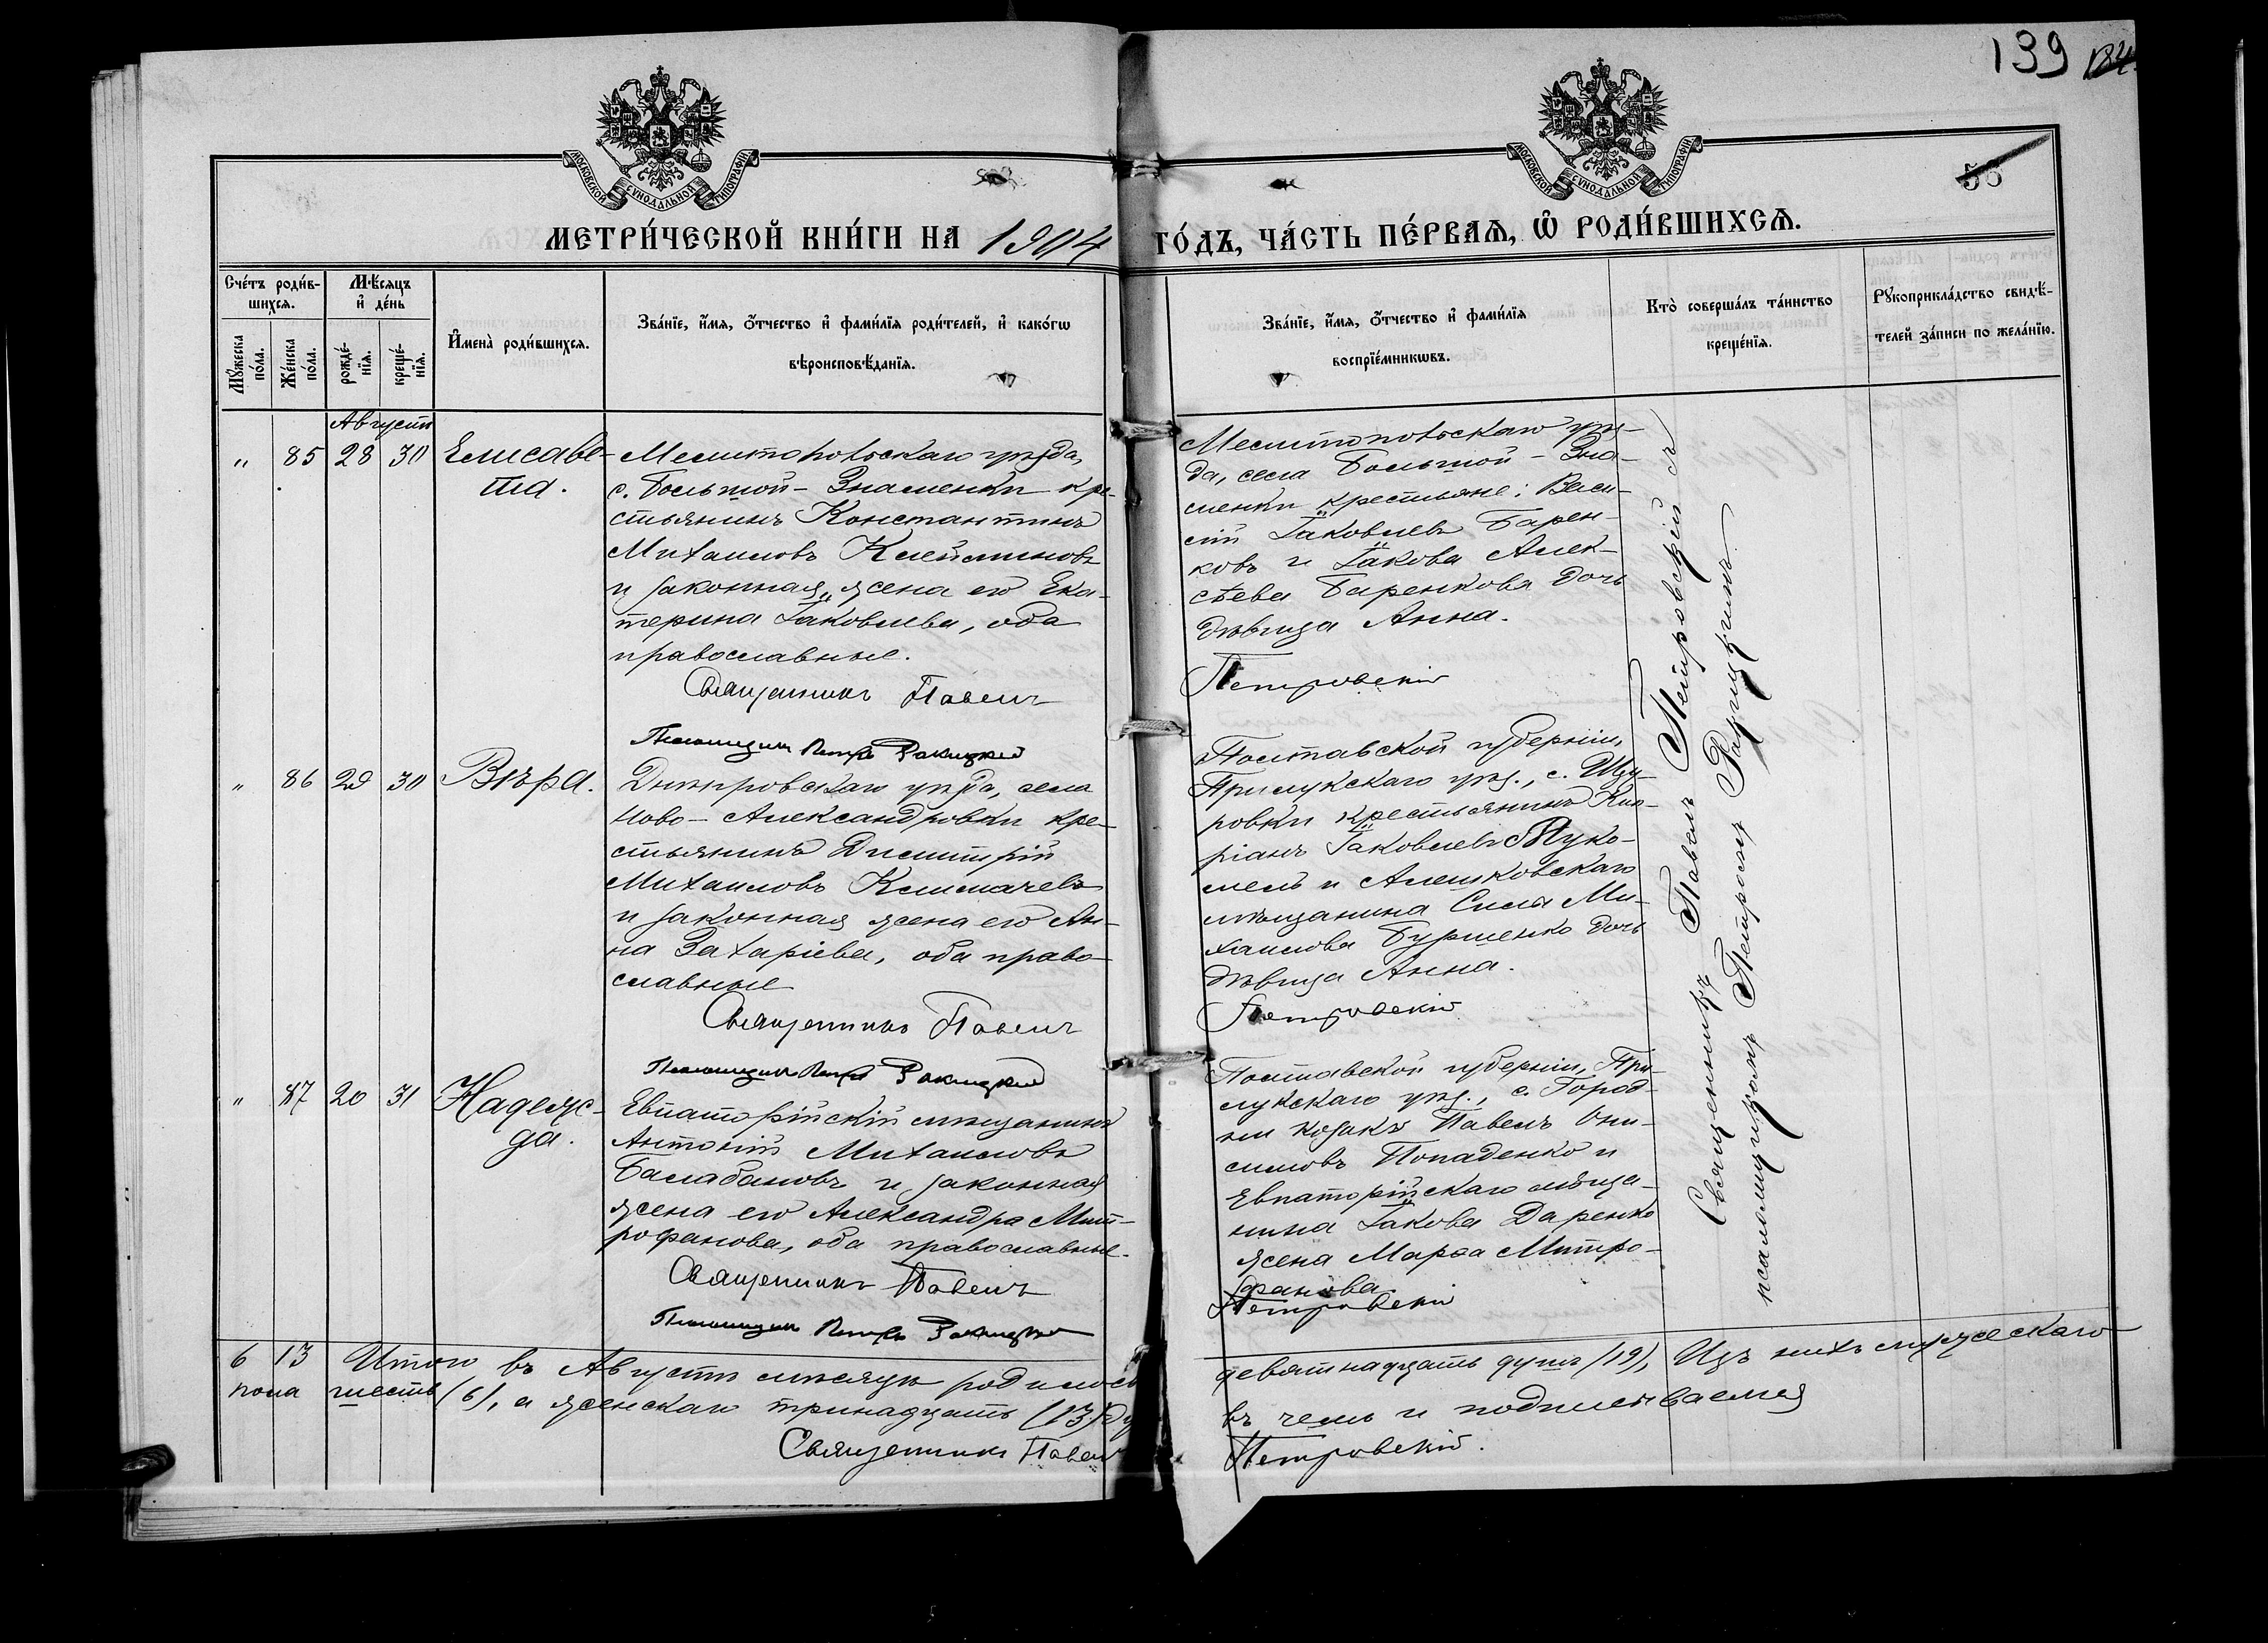 139 184
МОСКОВСКОЙ СѴНОДАЛЬНОЙ ТИПОГРАФІИ
МОСКОВСКОЙ СѴНОДАЛЬНОЙ ТИПОГРАФІИ
56
МЕТРИ́ЧЕСКОЙ КНИ́ГИ НА 1904 ГО́ДЪ, ЧА́СТЬ ПЕ́РВАѦ, Ѡ҆ РОДИ́ВШИХСѦ.
Сче́тъ роди́в-
шихся.
Мꙋ́жеска по́ла.
Же́нска по́ла.
Мѣ́сяцъ
и҆ де́нь
рожде́-
нїя.
креще́-
нїя.
И҆мена̀ роди́вшихся.
Зва́нїе, и҆́мя, ѻ҆́тчество и҆ фами́лїя роди́телей, и҆ како́гѡ
вѣроисповѣ́данїя.
Зва́нїе, и҆́мя, ѻ҆́тчество и҆ фами́лїя
воспрїе́мникѡвъ.
Кто̀ соверша́лъ та́инство
креще́нїя.
Рꙋкоприкла́дство свидѣ́-
телей за́писи по жела́нїю.
Августъ
„ 85 28 30 Елисаве-
та.
Мелитопольскаго уѣзда,
с. Большой-Знаменки кре-
стьянинъ Константинъ
Михаиловъ Клейменовъ
и законная жена его Ека-
терина Іаковлева, оба
православные.
Священникъ Павелъ
Псаломщикъ Петръ Ракицкій
Мелитопольскаго уѣз-
да, села Большой-Зна-
менки крестьяне: Васи-
лій Іаковлевъ Барен-
ковъ и Іакова Алек-
сѣева Баренкова дочь
дѣвица Анна.
Петровскій
„ 86 29 30 Вѣра.
Днѣпровскаго уѣзда, села
Ново-Александровки кре-
стьянинъ Димитрій
Михаиловъ Климачевъ
и законная жена его Ан-
на Захаріева, оба право-
славные
Священникъ Павелъ
Псаломщикъ Петръ Ракицкій
Полтавской губерніи,
Прилукскаго уѣз., с. Щу-
ровки крестьянинъ Ки-
ріанъ Іаковлевъ
и Алешковскаго
мѣщанина Сила Ми-
хаилова Бурженко дочь
дѣвица Анна.
Петровскій
„ 87 20 31 Надеж-
да.
Евпаторійскій мѣщанинъ
Антоній Михаиловъ
Балабановъ и законная
жена его Александра Мит-
рофанова, оба православные.
Священникъ Павелъ
Псаломщикъ Петръ Ракицкій
Полтавской губерніи, При-
лукскаго уѣз., с. Город-
ни козакъ Павелъ Они-
симовъ Попаденко и
Евпаторійскаго мѣща-
нина Іакова Даренко
жена Марѳа Митро-
фанова.
Петровскій
Священникъ Павелъ Петровскій съ
псаломщикомъ Петромъ Ракицкимъ
6 13 Итого въ Августѣ мѣсяцѣ родилось девятнадцать душъ (19), Изъ нихъ мужескаго
пола шесть (6), а женскаго тринадцать (13) въ чемъ и подписываемся
Священникъ Павелъ Петровскій.